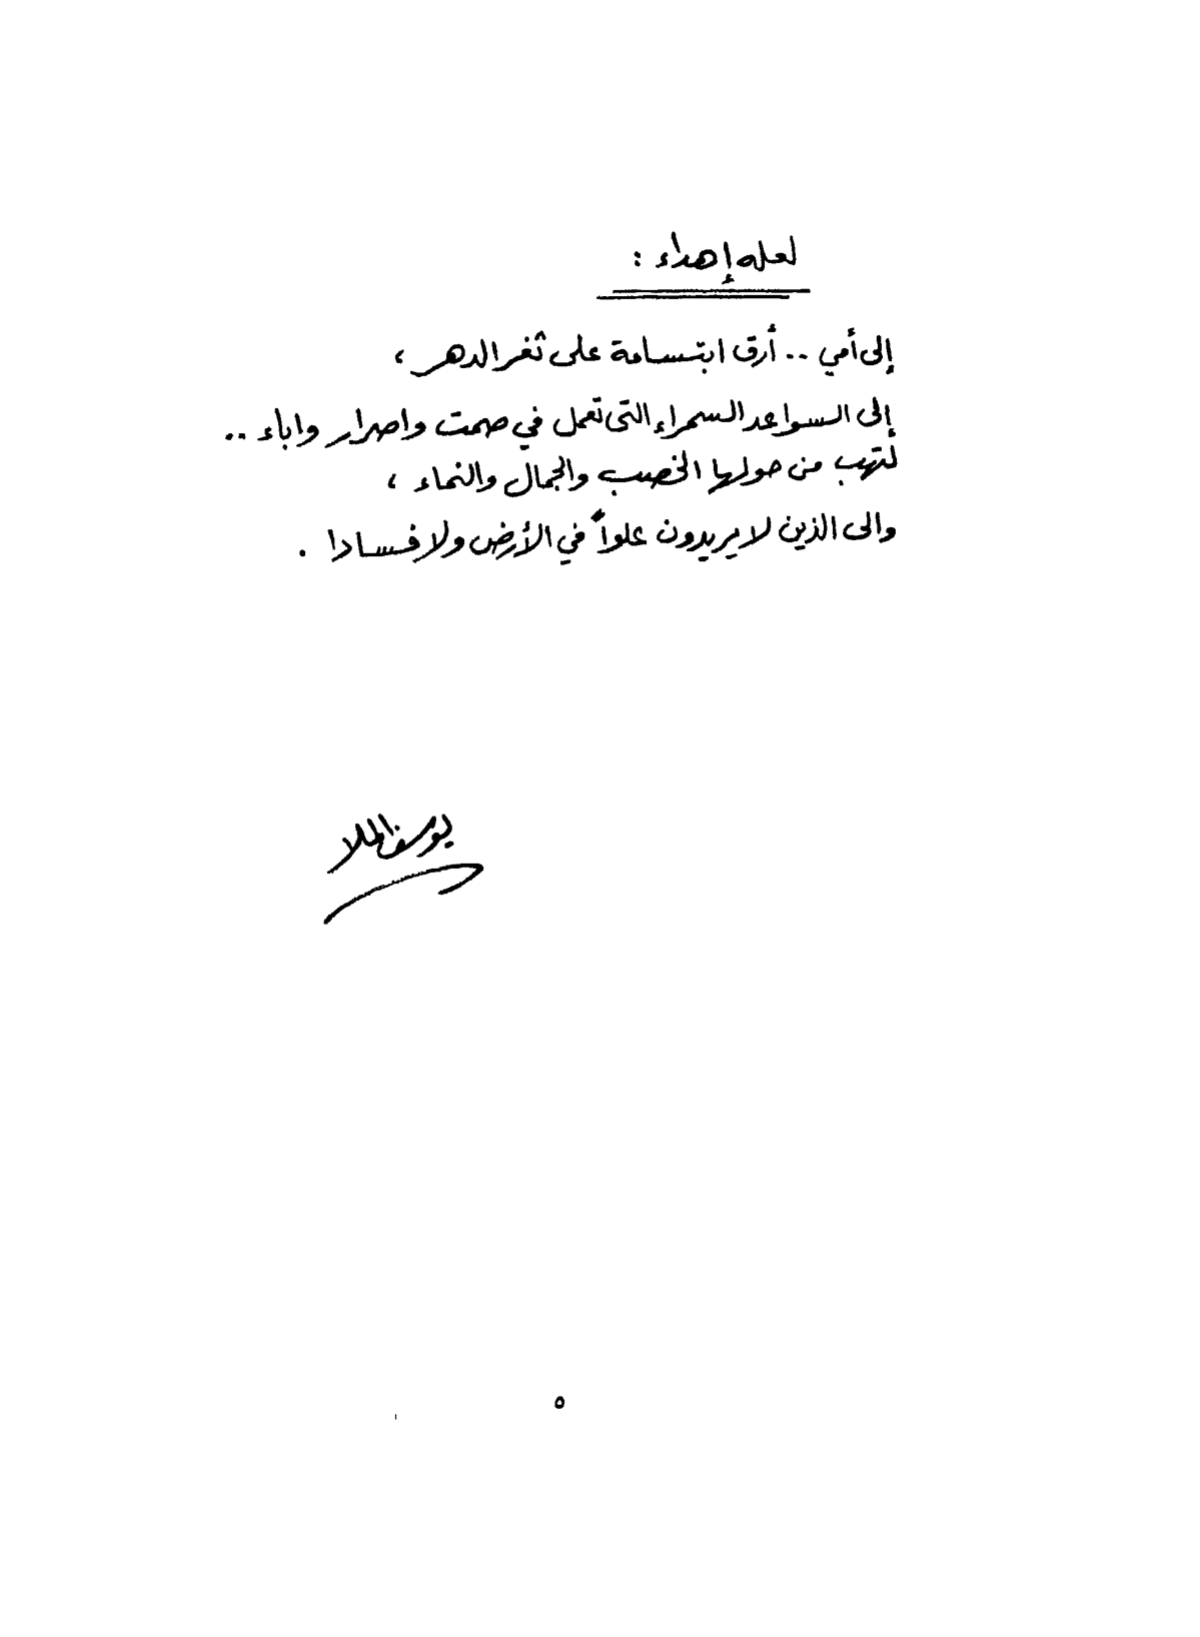 لعله إهداء :
إلى أمي .. أرق ابتسامة على ثغر الدهر ،
إلى السواعد السمراء التى تعمل في صمت واصرار واباء ..
لتهب من حولها الخصب والجمال والنماء ،
والى الذين لا يريدون علواً في الأرض ولا فسادا .
يوسف الملا
٥